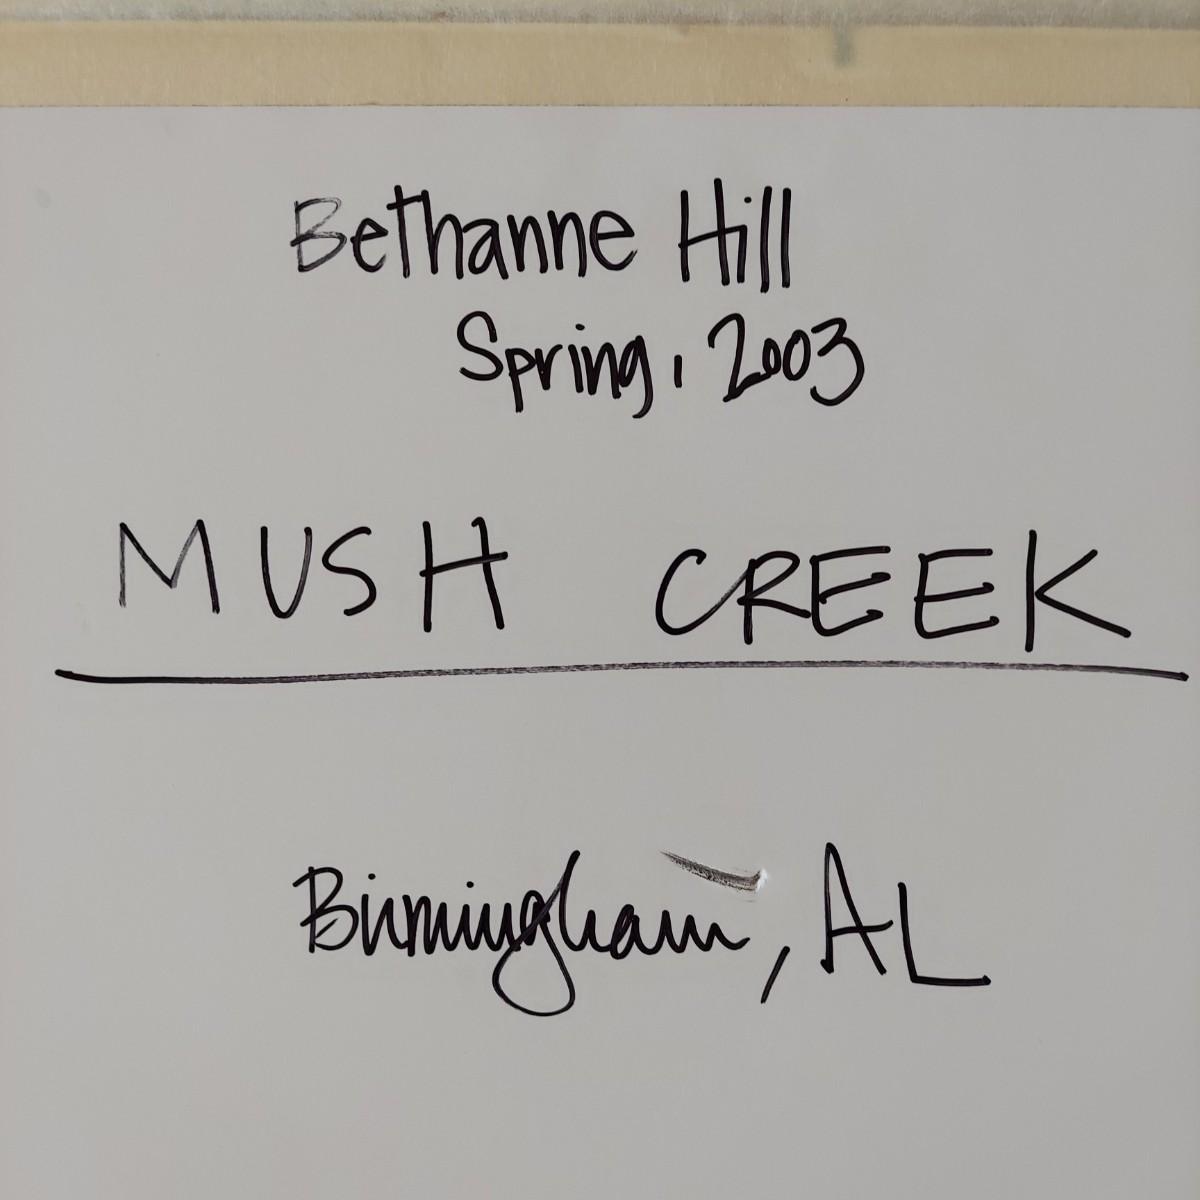 Bethanne Hill
Spring, 2003
MUSH CREEK
Birmingham, AL